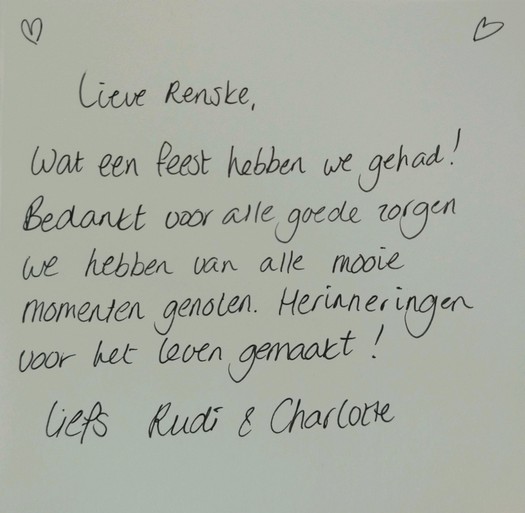 Lieve Renske,
Wat een feest hebben we gehad!
Bedankt voor alle goede zorgen
we hebben van alle mooie
momenten genoten. Herinneringen
voor het leven gemaakt!
liefs Rudi & Charlotte